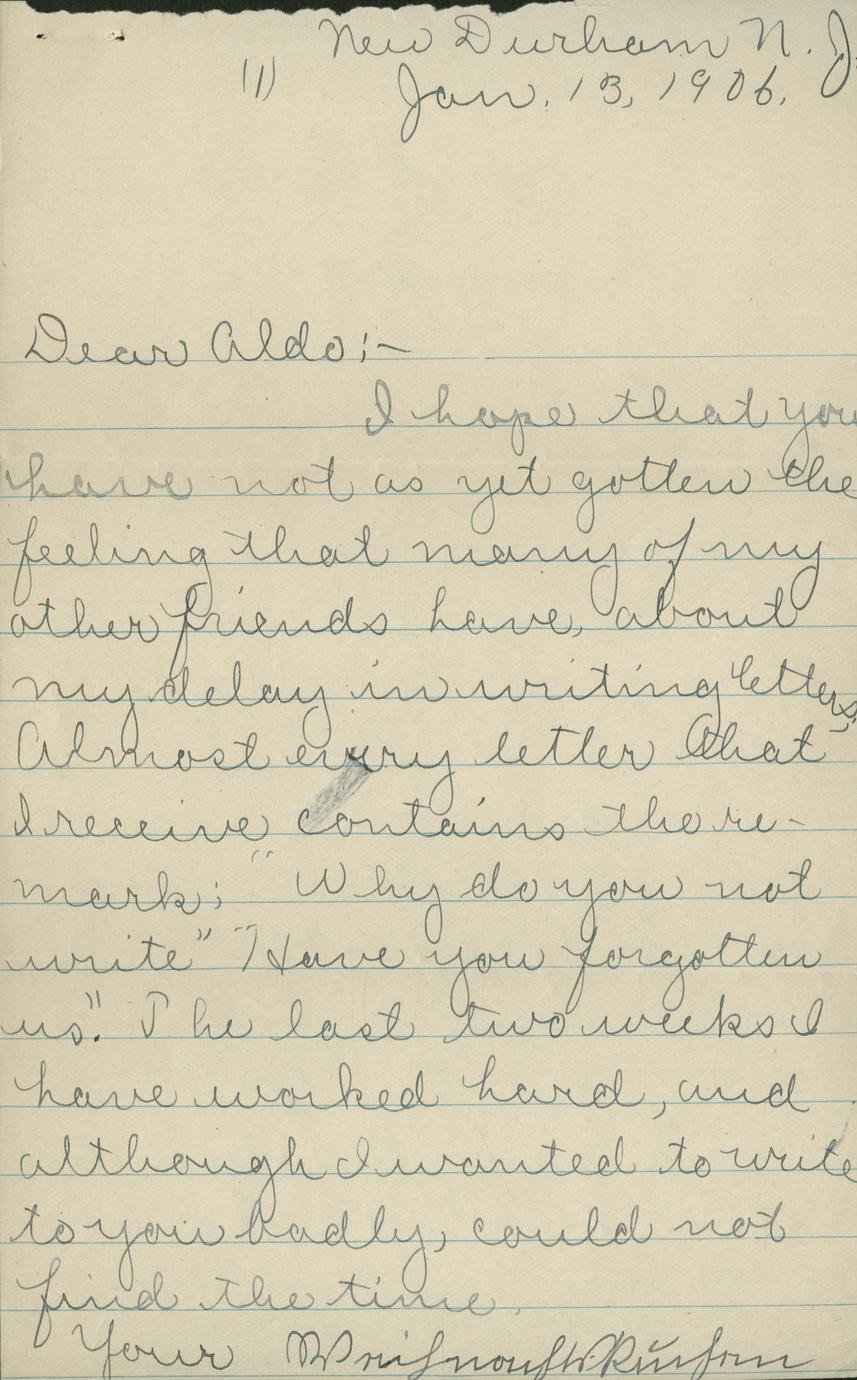 New Durham N. J.
(1) Jan. 13, 1906.
Dear Aldo:-
I hope that you
have not as yet gotten the
feeling that many of my
other friends have, about
my delay in writing letters.
Almost every letter that
I receive contains the re-
mark; "Why do you not
write" "Have you forgotten
us". The last two weeks I
have worked hard, and
although I wanted to write
to you badly, could not
find the time.
Your Weihnachts Kuchen